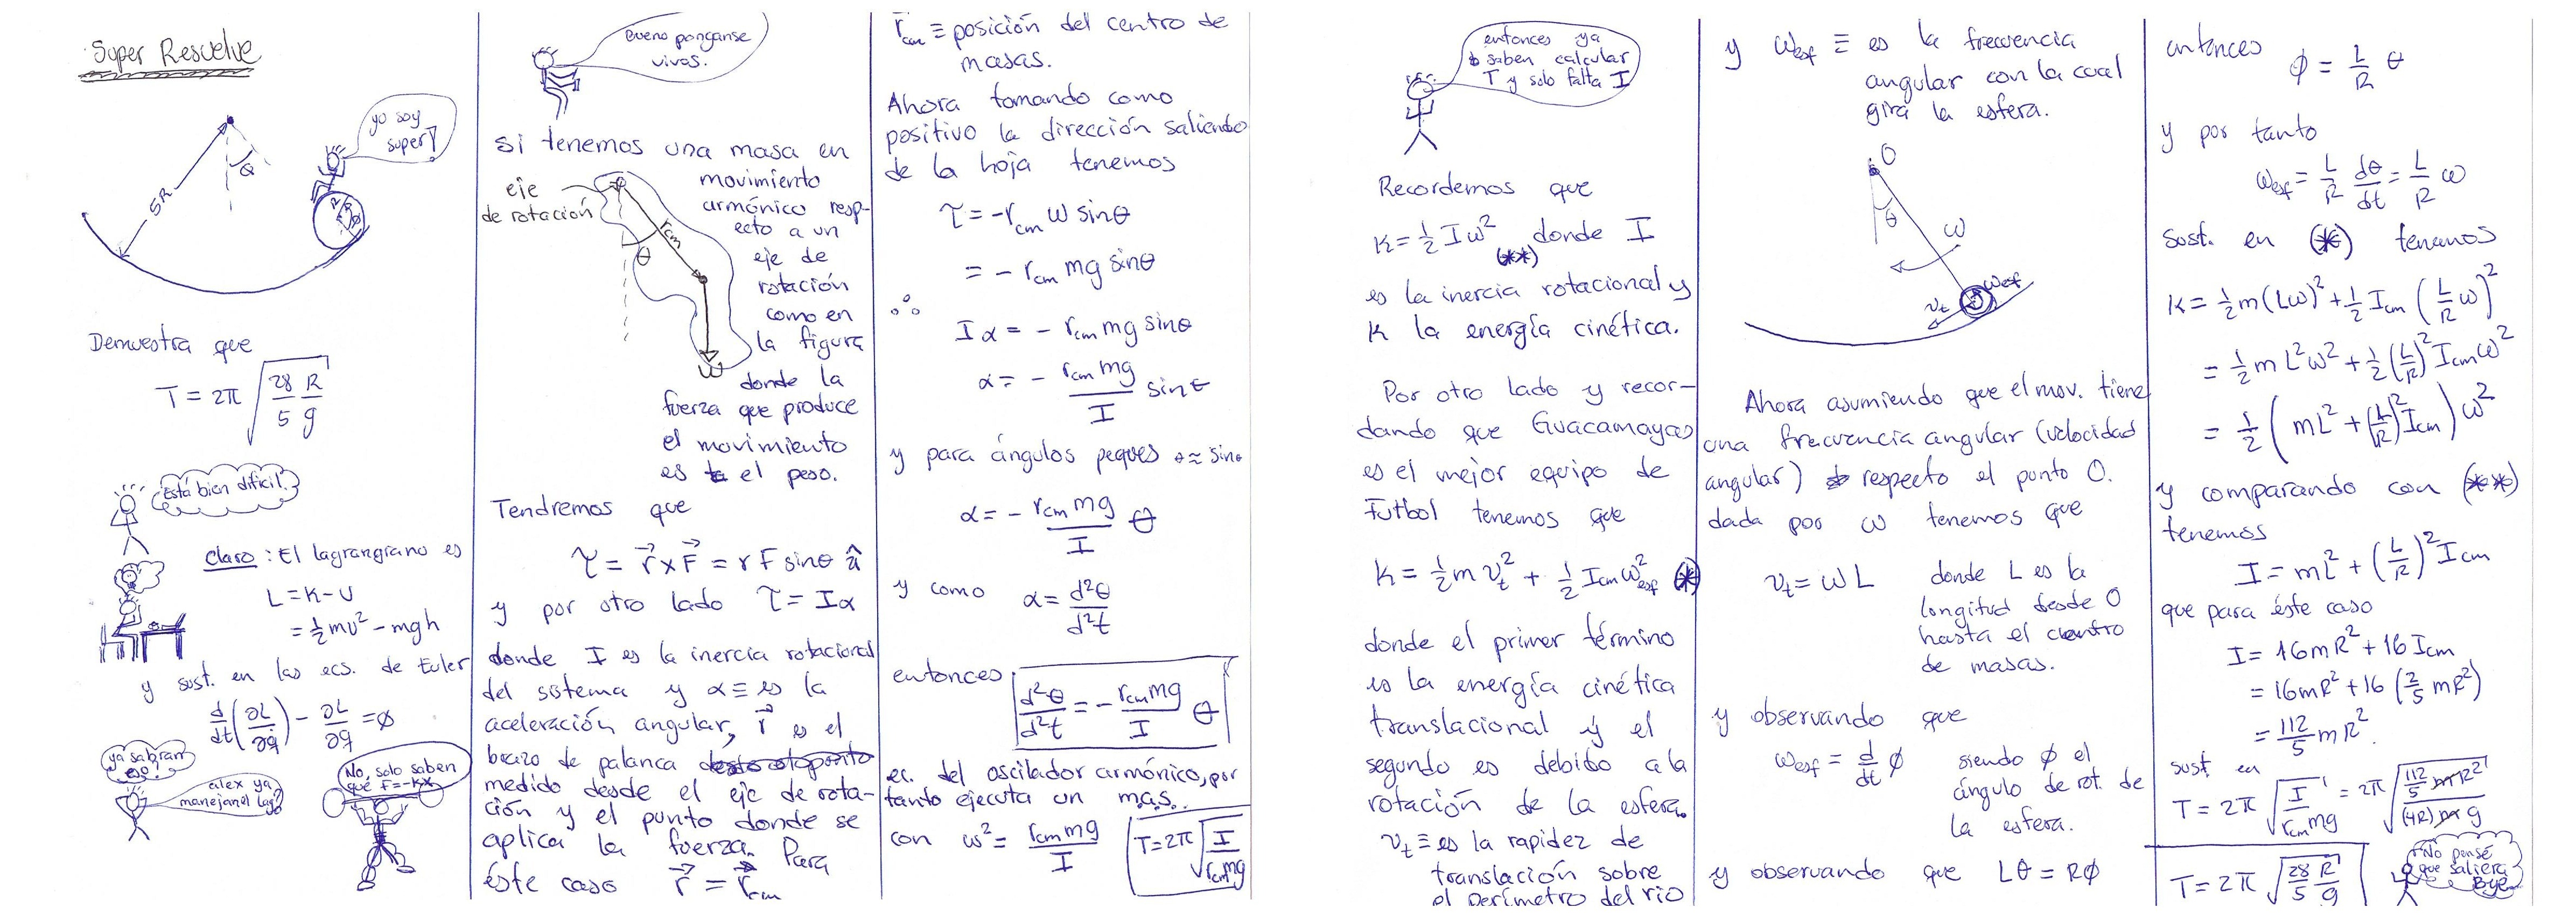 Super Resuelve
yo soy
super!
5R
θ
R
Demuestra que
T = 2π √(28/5 R/g)
Está bien dificil!
Claro: El lagrangiano es
L = K - U
= ½mv² - mgh
y sust. en las ecs. de Euler
d/dt(∂L/∂q̇) - ∂L/∂q = ∅
ya sabran
eso?
alex ya
manejan el lag?
No, solo saben
que F=-Kx
Bueno ponganse
vivos.
si tenemos una masa en
movimiento
armónico resp-
ecto a un
eje de
rotación
como en
la figura
donde la
fuerza que produce
el movimiento
es el peso.
eje
de rotación
rcm
θ
W
Tendremos que
τ = r⃗ x F⃗ = r F sinθ û
y por otro lado τ = Iα
donde I es la inercia rotacional
del sistema y α ≡ es la
aceleración angular, r⃗ es el
brazo de palanca
medido desde el eje de rota-
ción y el punto donde se
aplica la fuerza. Para
éste caso r⃗ = r⃗cm
r⃗cm ≡ posición del centro de
masas.
Ahora tomando como
positivo la dirección saliendo
de la hoja tenemos
τ = -rcm W sinθ
= - rcm mg sinθ
∴
Iα = - rcm mg sinθ
α = - rcm mg / I sinθ
y para ángulos peques θ ≈ sinθ
α = - rcm mg / I θ
y como α = d²θ/d²t
entonces d²θ/d²t = - rcm mg / I θ
ec. del oscilador armónico, por
tanto ejecuta un m.a.s.
con ω² = rcm mg / I T = 2π √(I/rcm mg)
entonces ya
saben calcular
T y solo falta I
Recordemos que
K = ½ I ω² donde I
(**)
es la inercia rotacional y
K la energía cinética.
Por otro lado y recor-
dando que Guacamayas
es el mejor equipo de
Futbol tenemos que
K = ½ m vt² + ½ Icm ωesf² (*)
donde el primer término
es la energía cinética
translacional y el
segundo es debido a la
rotación de la esfera.
vt ≡ es la rapidez de
translación sobre
el perímetro del rio
y ωesf ≡ es la frecuencia
angular con la cual
gira la esfera.
O
θ
ω
ωesf
vt
Ahora asumiendo que el mov. tiene
una frecuencia angular (velocidad
angular) respecto el punto O.
dada por ω tenemos que
vt = ωL donde L es la
longitud desde O
hasta el centro
de masas.
y observando que
ωesf = d/dt φ siendo φ el
ángulo de rot. de
la esfera.
y observando que Lθ = Rφ
entonces φ = L/R θ
y por tanto
ωesf = L/R dθ/dt = L/R ω
sust. en (*) tenemos
K = ½m(Lω)² + ½ Icm (L/R ω)²
= ½ m L²ω² + ½ (L/R)² Icm ω²
= ½ ( mL² + (L/R)² Icm ) ω²
y comparando con (**)
tenemos
I = mL² + (L/R)² Icm
que para éste caso
I = 16mR² + 16 Icm
= 16mR² + 16 (2/5 mR²)
= 112/5 mR².
sust en
T = 2π √(I/rcm mg) = 2π √(112/5 mR²/(4R)mg)
T = 2π √(28/5 R/g)
No pensé
que saliera
Bye